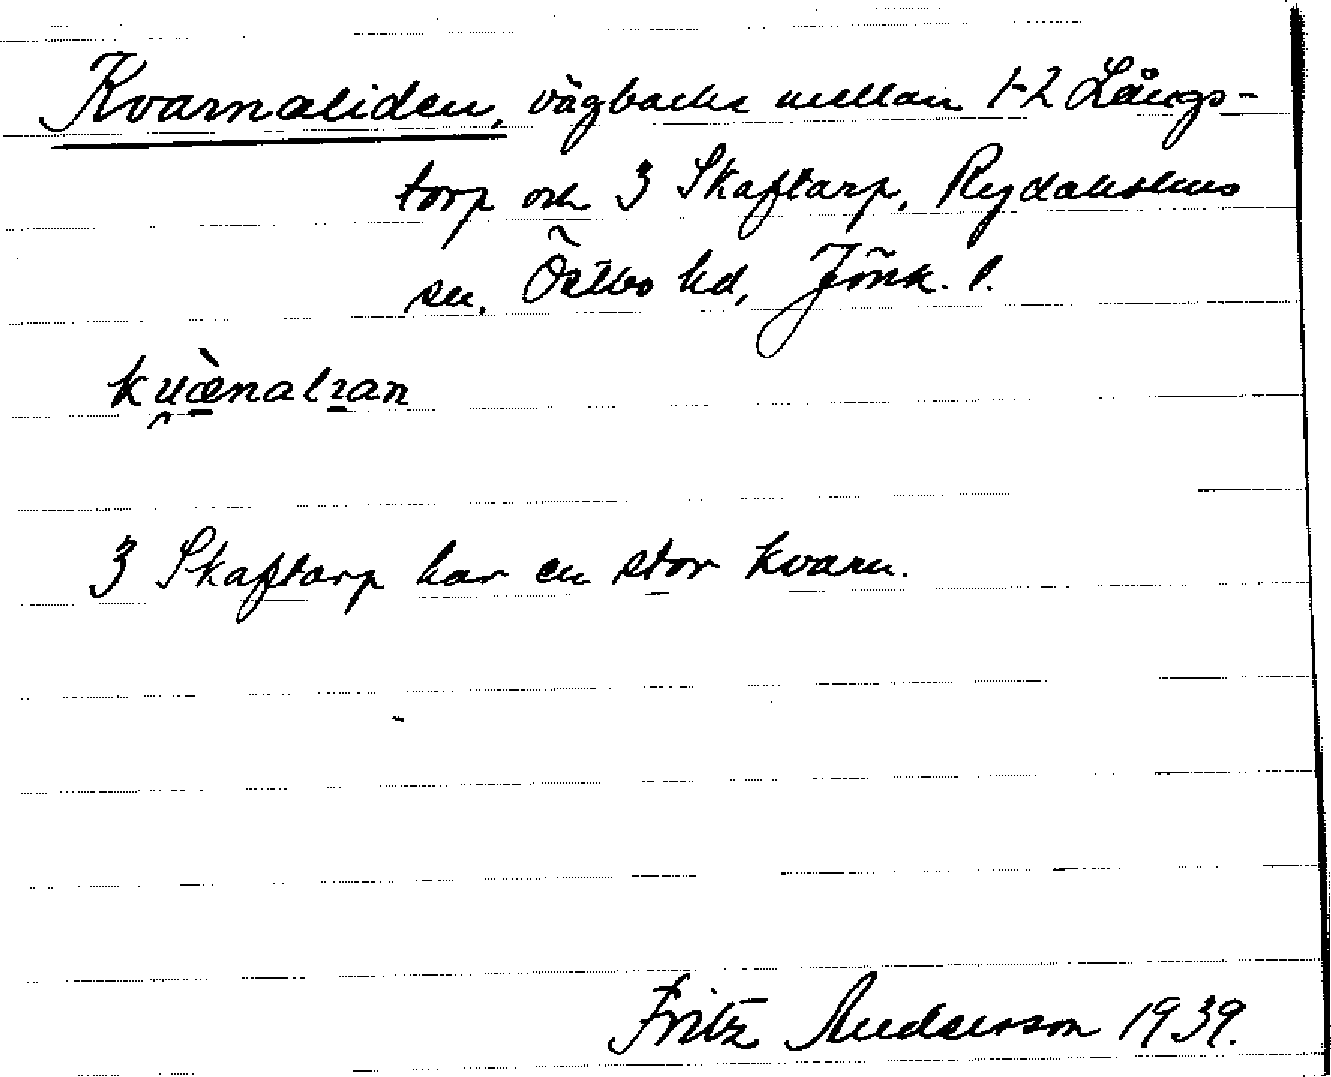 Kvarnaliden, vägbacke mellan 1-2 Långs-
torp och 3 Skaftarp, Rydaholms
sn. Östbo hd, Jönk. l.
3 Skaftarp har en stor kvarn.
Fritz Anderson 1939.